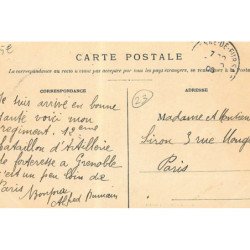 CARTE POSTALE
La correspondance au recto n'est pas acceptée par tous les pays étrangers, se renseignez
CORRESPONDANCE
ADRESSE
23
Je suis arrivé en bonne
santé voici mon
regiment. 12eme
bataillon d'Artillerie
de forteresse a Grenoble
c'est un peu loin de
Paris Bonjour
Alfred
Madame et Monsieur
3 rue
Paris